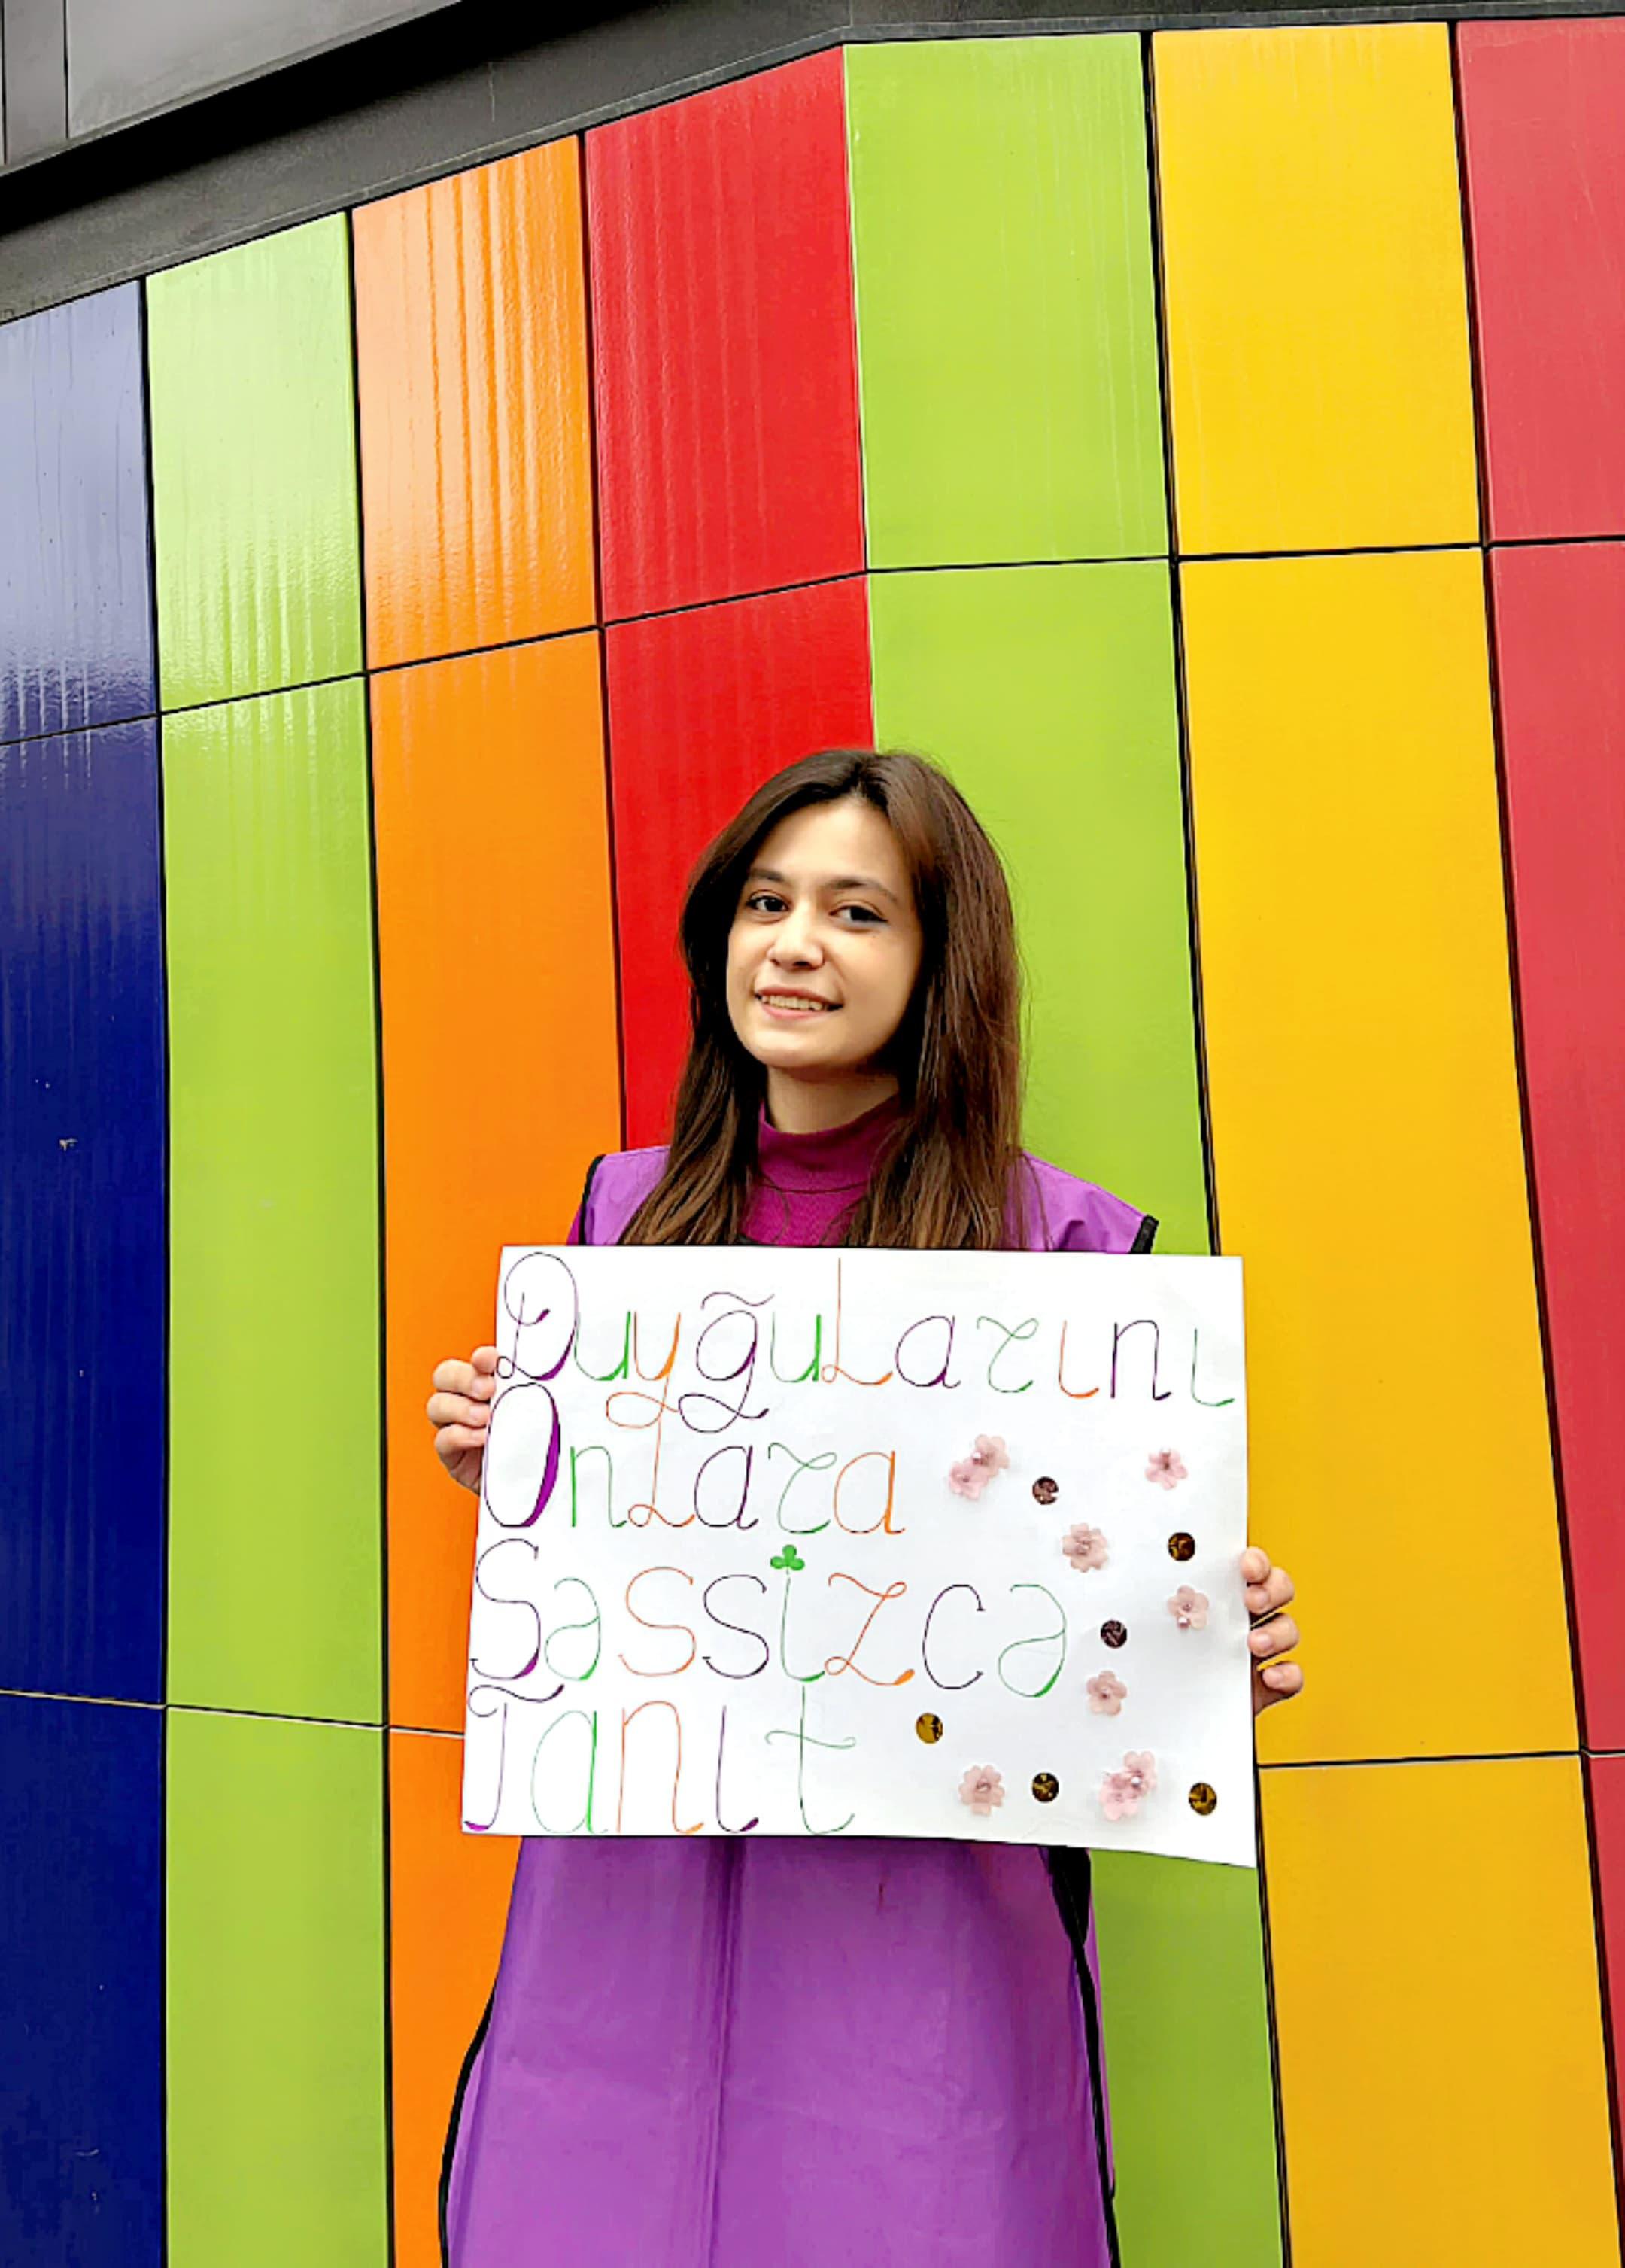 Duyğularını
Onlara
Səssizcə
Tanıt